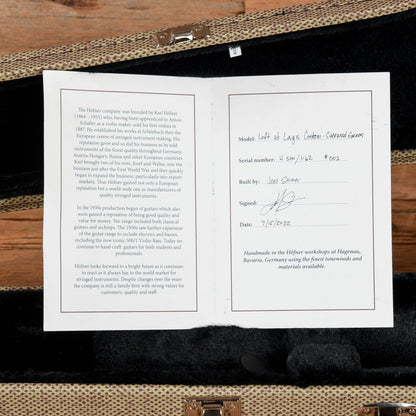 The Höfner company was founded by Karl Höfner
(1864 – 1955) who, having been apprenticed to Anton
Schaller as a violin maker, sold his first violins in
1887. He established his works at Schönbach then the
European centre of stringed instrument making. His
reputation grew and so did his business as he sold
instruments of the finest quality throughout Germany,
Austria, Hungary, Russia and other European countries.
Karl brought two of his sons, Josef and Walter, into the
business just after the First World War and they quickly
began to expand the business, particularly into export
markets. Thus Höfner gained not only a European
reputation but a world-wide one as manufacturers of
quality stringed instruments.
In the 1930s production began of guitars which also
soon gained a reputation of being good quality and
value for money. The range included both classical
guitars and archtops. The 1950s saw further expansion
of the guitar range to include electrics and basses,
including the now iconic 500/1 Violin Bass. Today we
continue to hand craft guitars for both students and
professionals.
Höfner looks forward to a bright future as it continues
to react as it always has to the world market for
stringed instruments. Despite changes over the years
the company is still a family firm with strong values for
customers, quality and staff.
Model: Left at Lays Custom
Serial number: H 500/1-62 #002
Built by:
Signed:
Date: 7/15/2022
Handmade in the Höfner workshops at Hagenau,
Bavaria, Germany using the finest tonewoods and
materials available.